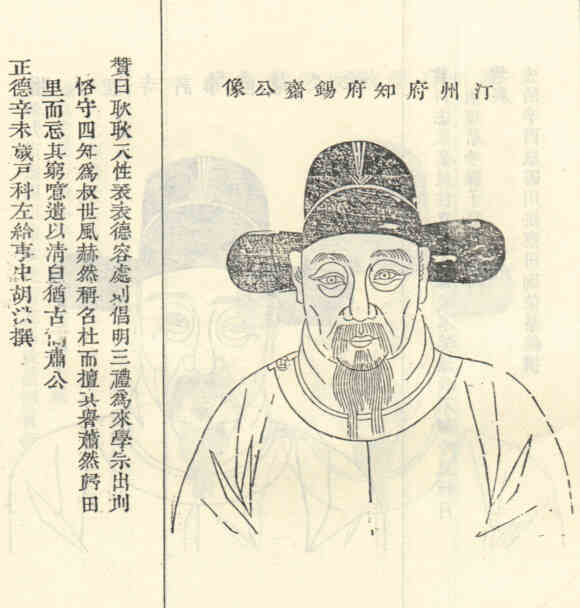 汀州府知府錫齋公像
贊曰耿耿天性表表德容處則倡明三禮爲來學示出則
恪守四知爲叔世風赫然稱名杜而擅其譽蕭然歸田
里而忘其窮噫遺以清白猶古蕭公
正德辛未歲戶科左給事中胡洪撰